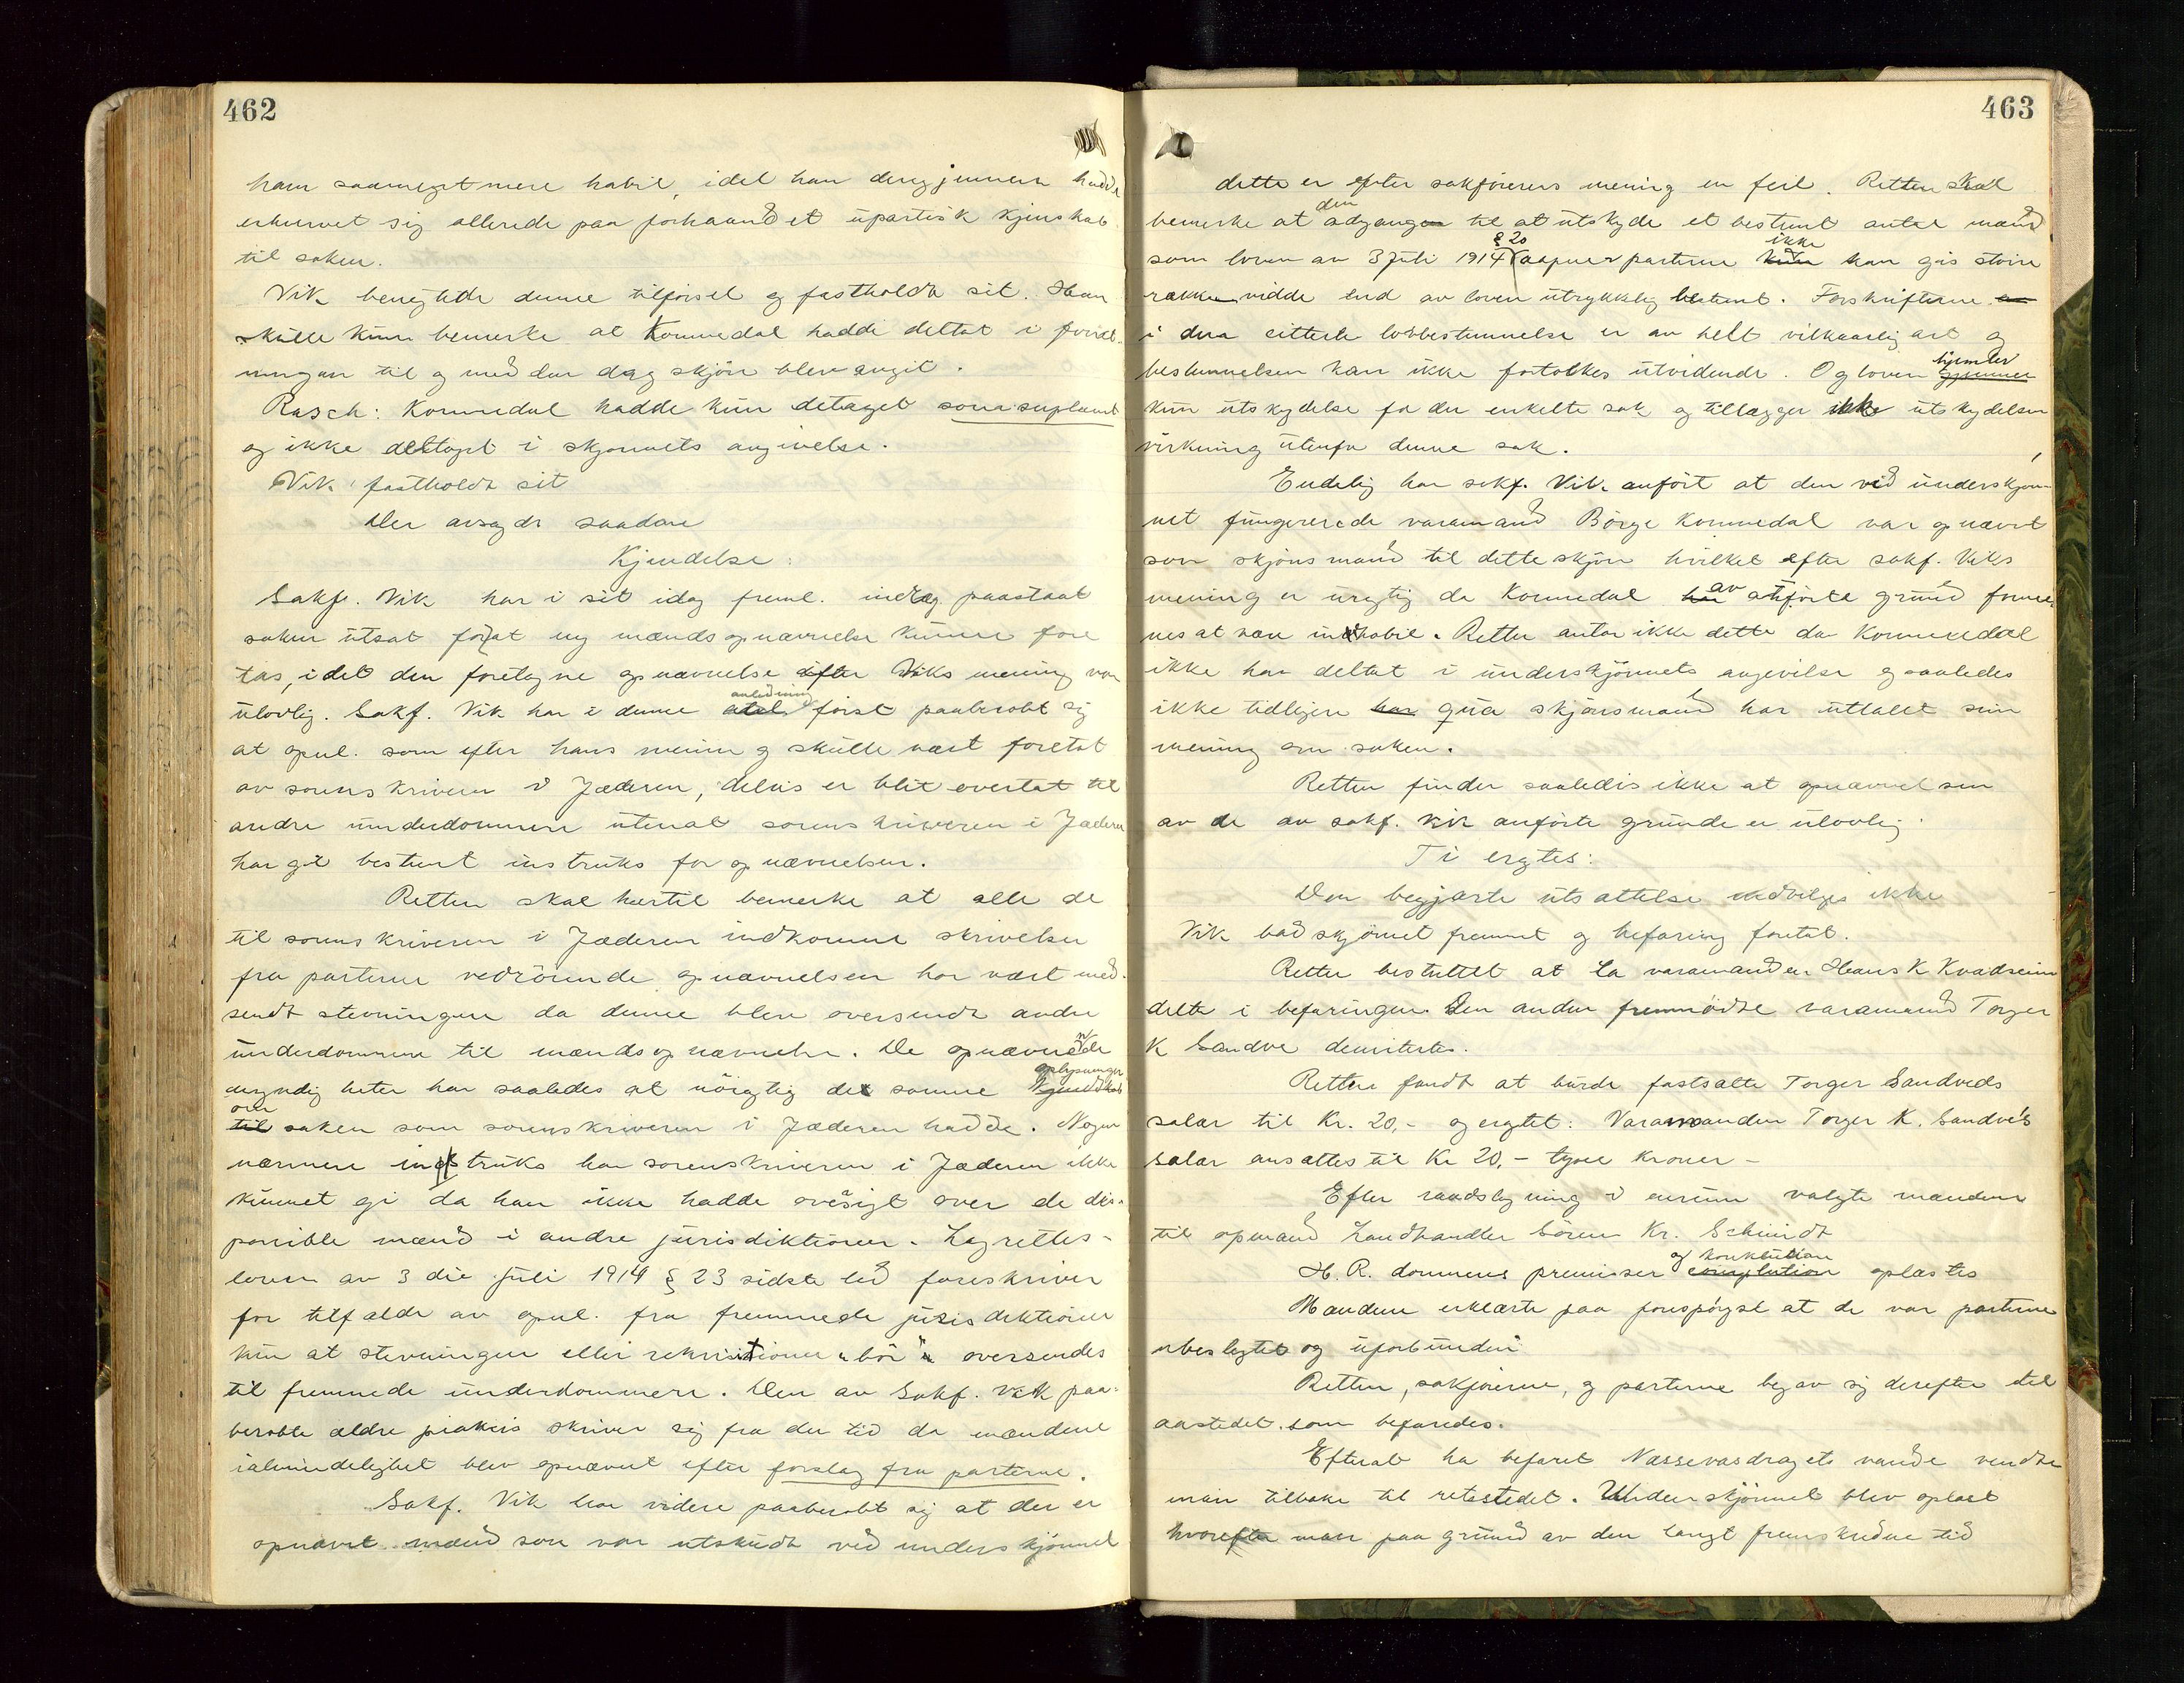 462
ham saameget mere habil, idet han derigjennem hadde
erhvervet sig allerede paa forhaand et upartisk kjenskab
til saken.
Vik benegtede denne tilførsel og fastholdt sit. Han
skulle kun bemerke at Kommedal hadde deltat i forret-
ningen til og med den dag skjön blev avgit.
Rasch: Kommedal hadde kun detaget som supleant
og ikke deltaget i skjønnets avgivelse.
Vik fastholdt sit
Der avsagdes saadan
Kjendelse:
Sakf. Vik har i sit idag freml. indlæg paastaat
saken utsat for at ny mændsopnævnelse kunne fore
tas, idet den foretagne opnævnelse efter Viks mening var
ulovlig. Sakf. Vik har i denne anledning først paaberobt sig
at opnl. som efter hans mening skulle vært foretat
av sorenskriveren i Jæderen, delvis er blit overlat til
andre underdommere utenat sorenskriveren i Jæderen
har git bestemt instruks for opnævnelsen.
Retten skal hertil bemerke at alle de
til sorenskriveren i Jæderen indkomne skrivelser
fra parterne vedrörende opnævnelsen har vært med-
sendt stevningen da denne blev oversendt andre
underdommere til mændsopnævnelse. De opnævnende
myndigheter har saaledes at nöiagtig de samme oplysninger
om saken som sorenskriveren i Jæderen hadde. Nogen
nærmere instruks har sorenskriveren i Jæderen ikke
kunnet gi da han ikke hadde oversigt over de dis-
ponible mænd i andre jurisdiktioner. Lagrettes-
loven av 3 die juli 1914 § 23 sidste led foreskriver
for tilfælde av opnl. fra fremmede jurisdiktioner
kun at stevningen eller rekvisitionen "bör" oversendes
til fremmede underdommere. Den av Sakf. Vik paa-
berobte ældre praksis skriver sig fra den tid da mændene
ialmindelighet blev opnævnt efter forslag fra parterne.
Sakf. Vik har videre paaberobt sig at der er
opnævnt mænd som var utskudt ved underskjönnet
463
dette er efter sakførerens mening en feil. Retten skal
bemerke at den adgang til at utskyde et bestemt antal mænd
som loven av 3 juli 1914 § 20 aapner parterne ikke kan gis större
rækkevidde end av loven utrykkelig bestemt. Forskrifterne
i den citterte lovbestemmelse er av helt vilkaarlig art og
bestemmelsen kan ikke fortolkes utvidende. Og loven hjemler
kun utskydelse for den enkelte sak og tillægger ikke utskydelsen
virkning utenfor denne sak.
Endelig har sakf. Vik anfört at den ved underskjøn-
net fungerende varamand Börge Kommedal var opnævnt
som skjönsmand til dette skjön hvilket efter sakf. Viks
mening er uregtig da Kommedal av anførte grund formenes
nes at være inhabil. Retten antar ikke dette da Kommedal
ikke har deltat i underskjönnets avgivelse og saaledes
ikke tidligere qua skjönsmand har uttalet sin
mening om saken.
Retten finder saaledes ikke at opnævnelsen
av de av sakf. Vik anförte grunde er ulovlig.
Ti eragtes:
Den begjærte utsættelse indvilges ikke
Vik bad skjönnet fremmet og befaring foretat.
Retten besluttet at la varamanden Hans K Kvadseim
delta i befaringen. Den anden fremmødte varamand Torger
K Sandve demitertes.
Retten fandt at burde fastsætte Torger Sandveds
salær til Kr. 20,- og eragtet: Varamanden Torger K. Sandve's
salær ansattes til Kr 20,- tyve kroner -
Efter raadslagning i enrum valgte mændene
til opmand Landhandler Sören Kr. Schmidt
H. R. dommens premisser og konklution oplæstes
Mændene erklærte paa forespörgsel at de var parterne
ubeslegtet og uforbunden
Retten, sakförerne, og parterne begav sig derefter til
aastedet som befaredes.
Efterat ha befaret Næssevasdragets vande vendte
man tilbake til retsstedet. Underskjönnet blev oplæst
hvorefter man paa grund av den langt fremskredne tid